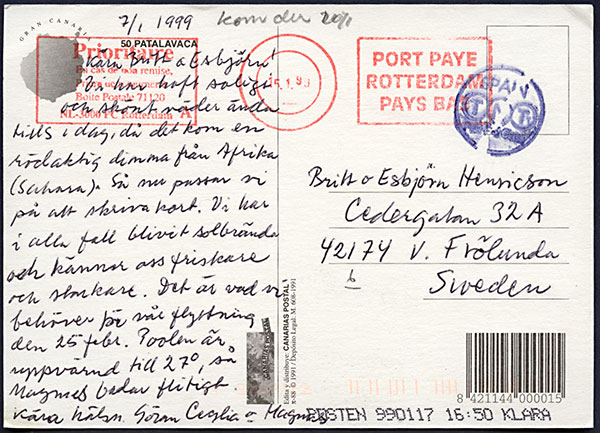 7/1 1999 kom der 20/1
GRAN CANARIA
50 PATALAVACA
Prioritaire
En cas de non remise,
Boite Postale 71120
NL-3000 PC Rotterdam A
PORT PAYE
ROTTERDAM
PAYS BAS
SPAIN
Kära Britt o Esbjörn!
Vi har haft soligt
och skönt väder ända
tills i dag, då det kom en
rödaktig dimma från Afrika
(Sahara). Så nu passar vi
på att skriva kort. Vi har
i alla fall blivit solbrända
och känner oss friskare
och starkare. Det är vad vi
behöver för vår flyttning
den 25 febr. Poolen är
uppvärmd till 27°, så
Magnus badar flitigt.
Kära häls. Göran Cecilia o Magnus
Britt o Esbjörn Henricson
Cedergatan 32 A
42174 V. Frölunda
Sweden
Edita y distribuye: CANARIAS POSTAL
Depósito Legal: M. 608-1991
CANARIAS POSTAL
8 421144 000015
POSTEN 990117 16:50 KLARA